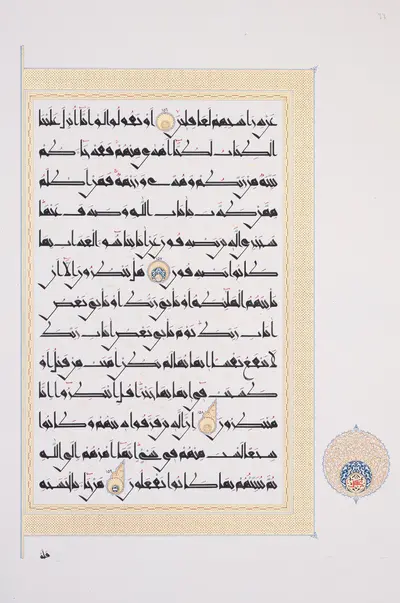 عن دراستهم لغافلين او تقولوا لو انا انزل علينا
الكتاب لكنا اهدى منهم فقد جاءكم
بينة من ربكم وهدى ورحمة فمن اظلم
ممن كذب بايات الله وصدف عنها
سنجزي الذين يصدفون عن اياتنا سوء العذاب بما
كانوا يصدفون هل ينظرون الا ان
تاتيهم الملائكة او ياتي ربك او ياتي بعض
ايات ربك يوم ياتي بعض ايات ربك
لا ينفع نفسا ايمانها لم تكن امنت من قبل او
كسبت في ايمانها خيرا قل انتظروا انا
منتظرون ان الذين فرقوا دينهم وكانوا
شيعا لست منهم في شيء انما امرهم الى الله
ثم ينبئهم بما كانوا يفعلون من جاء بالحسنة
فله